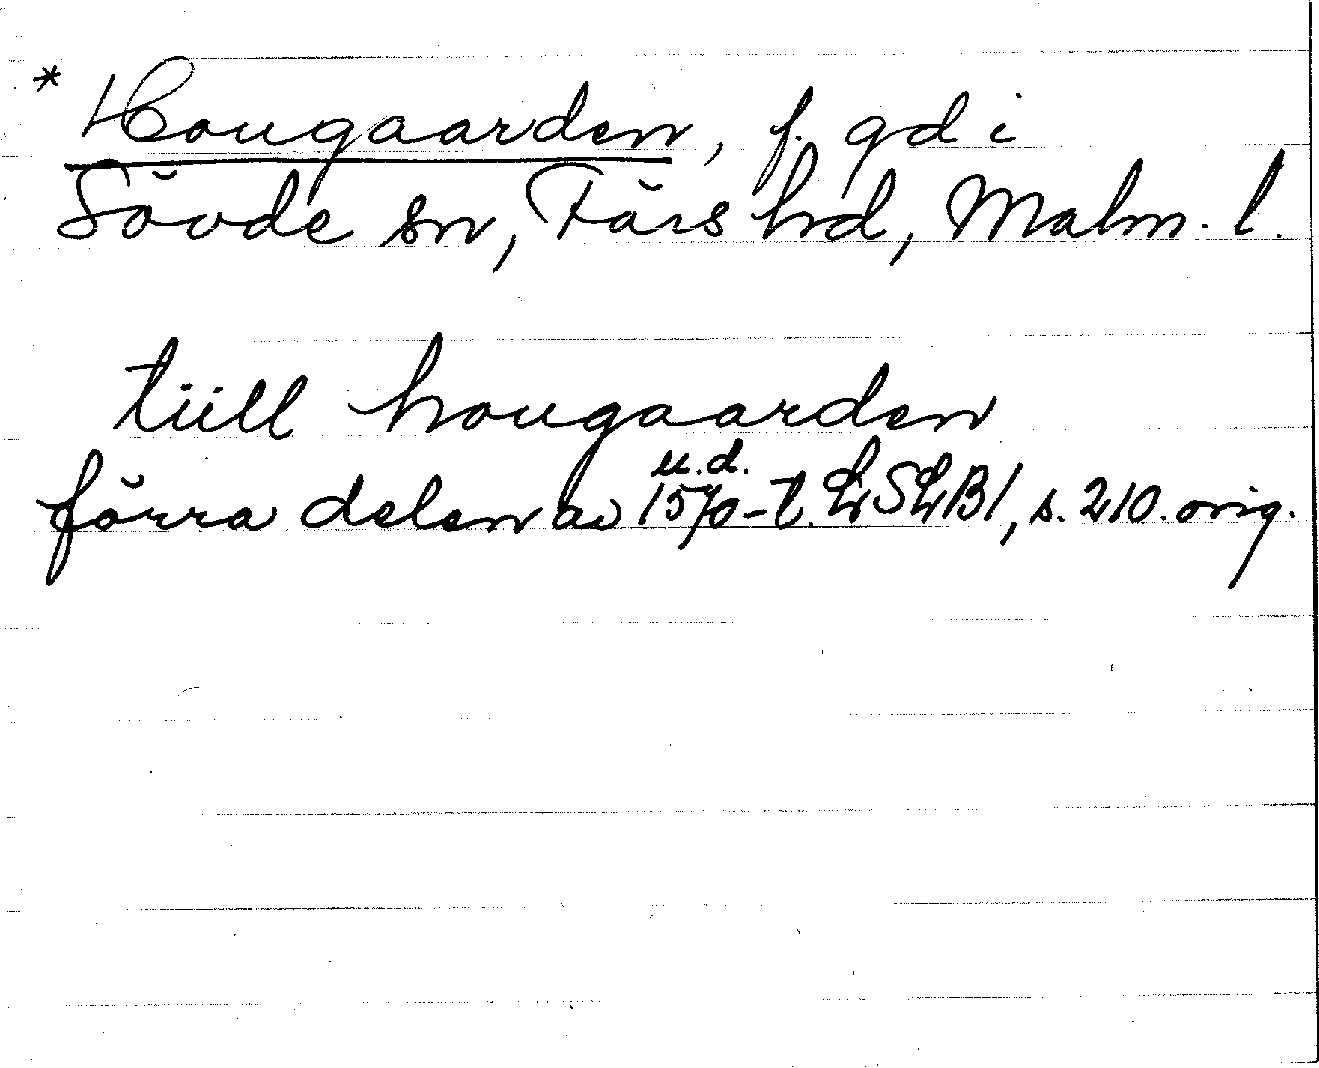 * Hougaarden, f. gd i
Sövde sn, Färs hd, Malm. l.
tiill hougaarden
u.d.
förra delen av 1570-t. LSLB1, s. 210. orig.